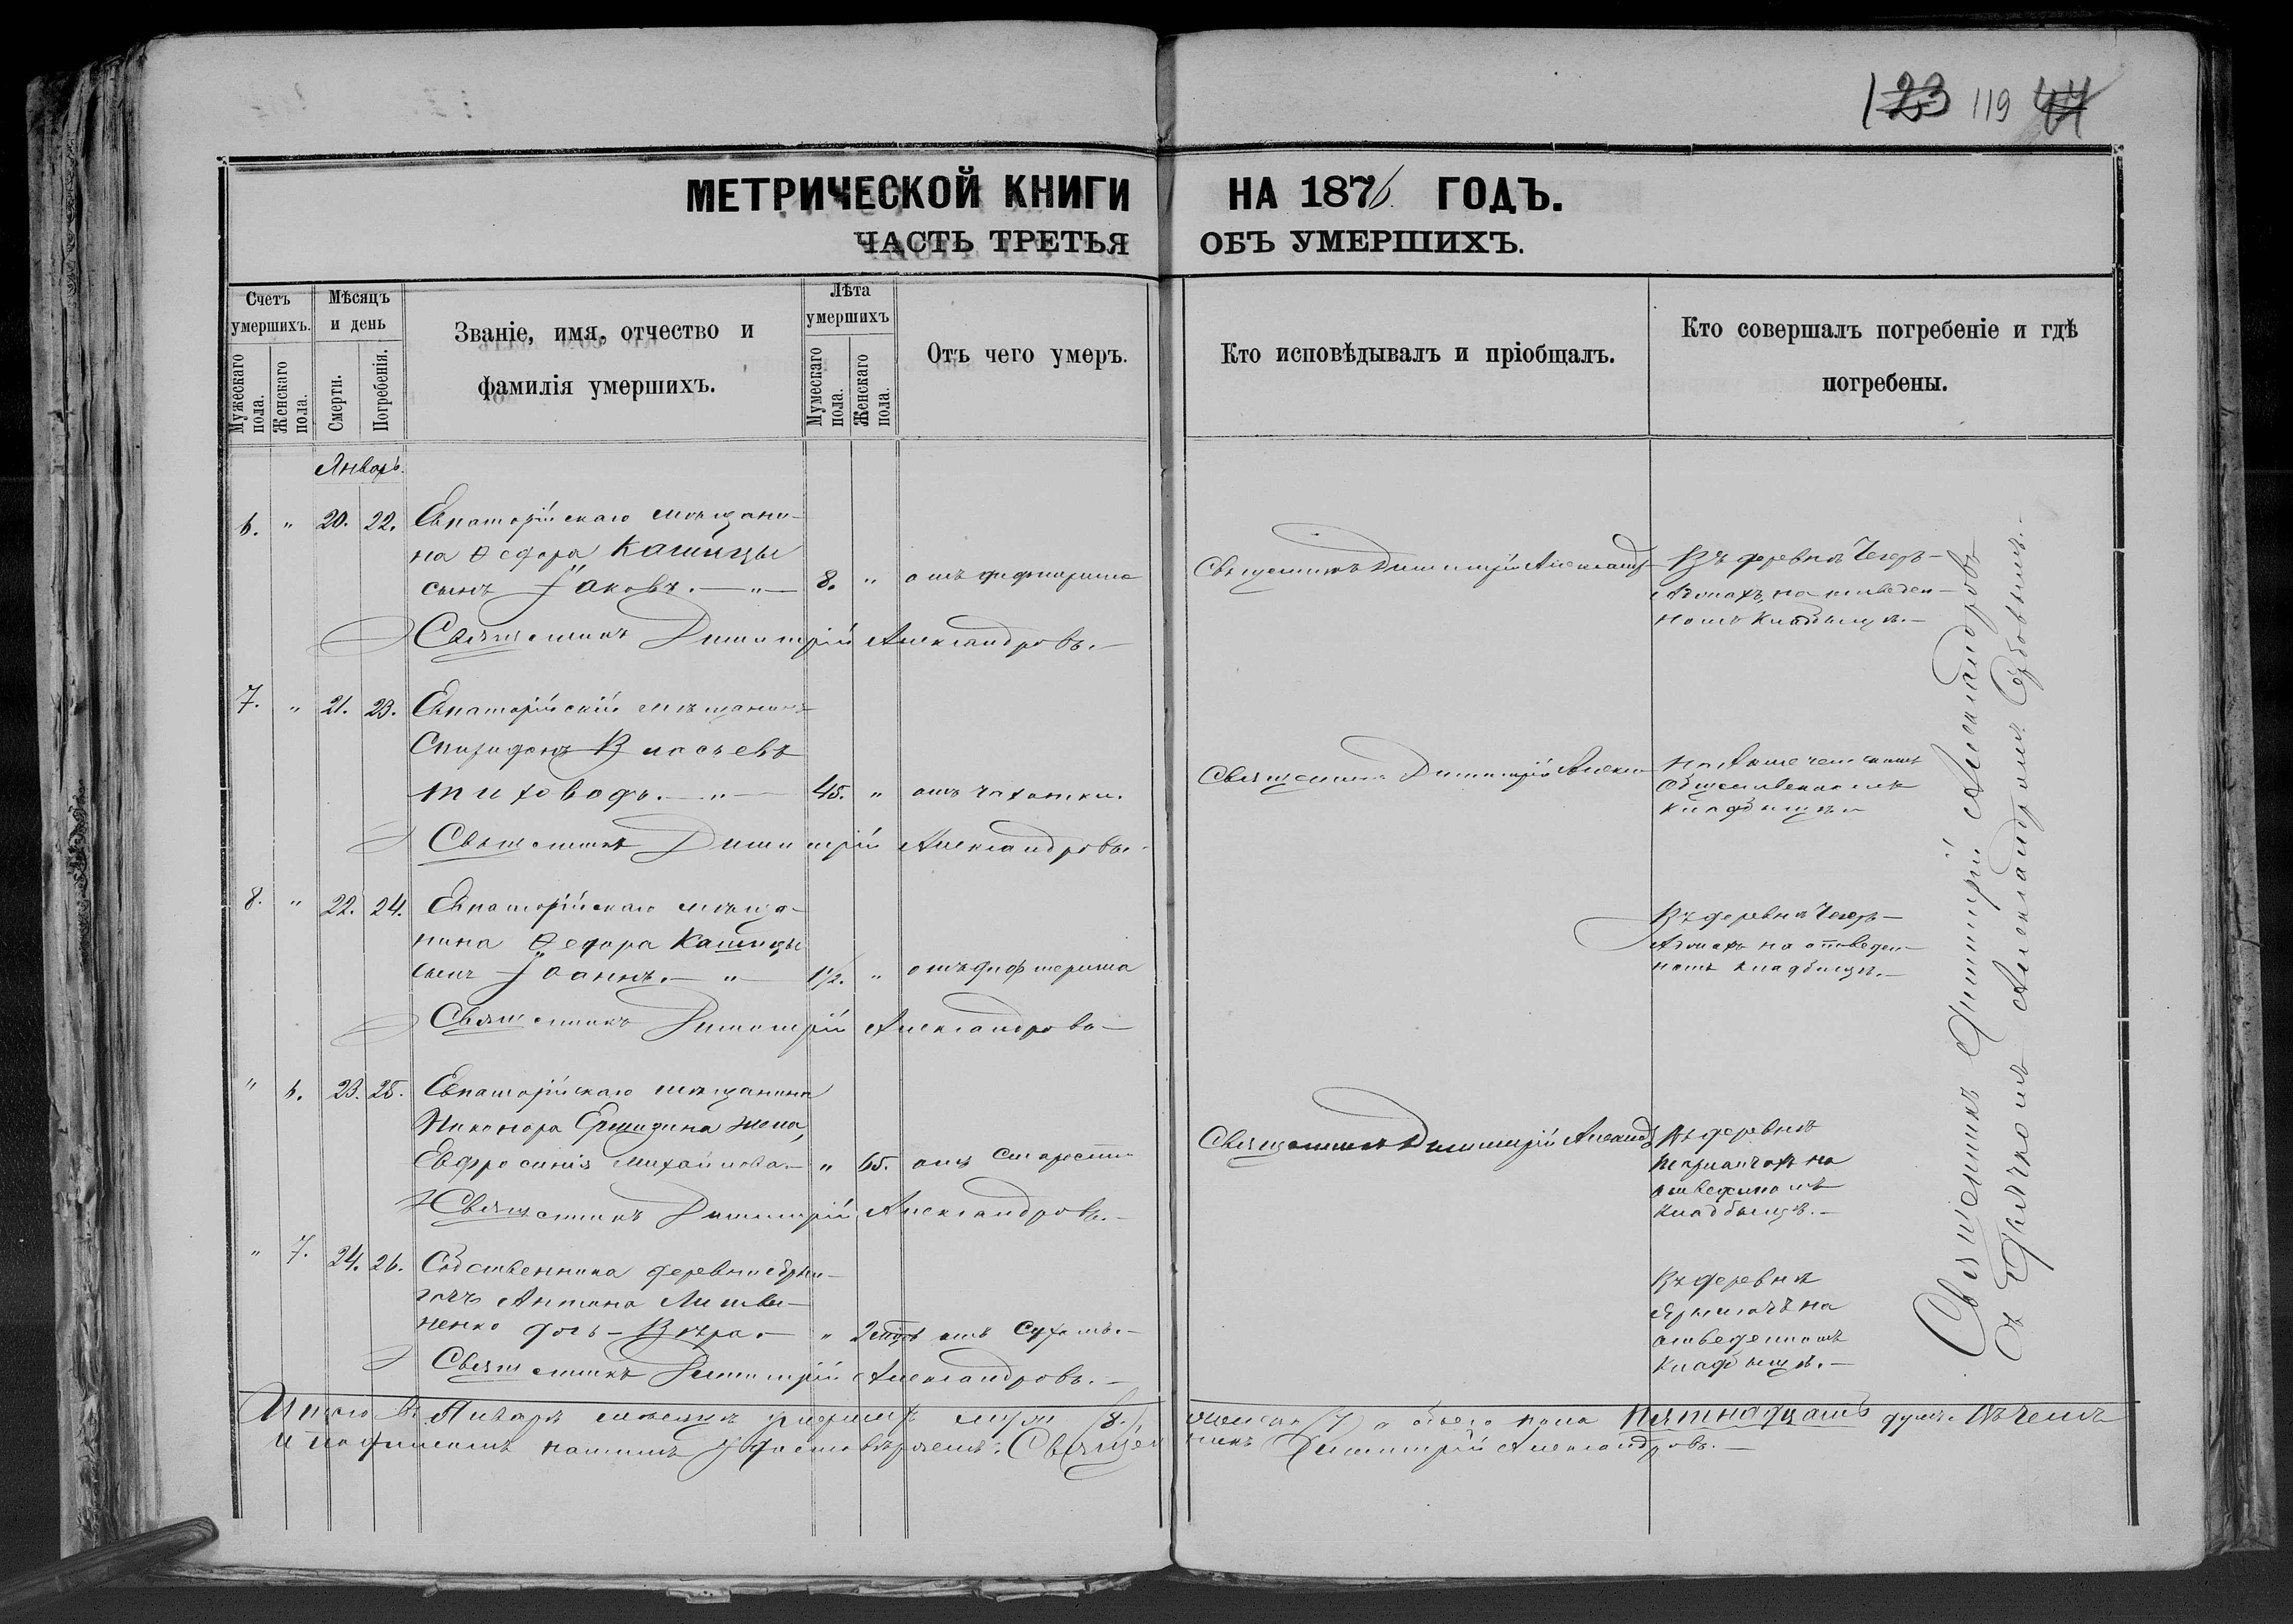 123 119 44
МЕТРИЧЕСКОЙ КНИГИ НА 1876 ГОДЪ.
ЧАСТЬ ТРЕТЬЯ ОБЪ УМЕРШИХЪ.
Счетъ умершихъ.
Мужескаго пола.
Женскаго пола.
Мѣсяцъ и день
Смерти.
Погребенія.
Званіе, имя, отчество и
фамилія умершихъ.
Лѣта умершихъ
Мужескаго пола.
Женскаго пола.
Отъ чего умеръ.
Кто исповѣдывалъ и пріобщалъ.
Кто совершалъ погребеніе и гдѣ
погребены.
Январь.
6. " 20. 22. Евпаторійскаго мѣщани-
на Ѳедора Кашицы
сынъ Іаковъ. — " — 8. " отъ дифтерита
Священникъ Димитрій Александр
Въ деревнѣ Чегеръ-
на отведен-
номъ кладбищѣ. —
Священникъ Димитрій Александровъ. —
7. " 21. 23. Евпаторійскій мѣщанинъ
Спиридонъ Власьевъ
Тиховодъ. — " — 45. " отъ чахотки.
Священникъ Димитрій Алекса
На
общественномъ
кладбищѣ
Священникъ Димитрій Александровъ. —
8. " 22. 24. Евпаторійскаго мѣща-
нина Ѳедора Кашицы
сынъ Іоаннъ. — " — 1½. " отъ дифтерита
Въ деревнѣ Чегеръ-
на отведен-
номъ кладбищѣ. —
Священникъ Димитрій Александровъ —
" 6. 23. 25. Евпаторійскаго мѣщанина
Никонора жена,
Евфросинія Михайлова — " 65. отъ старости
Священникъ Димитрій Александ
Въ деревнѣ
на
отведенномъ
кладбищѣ. —
Священникъ Димитрій Александровъ. —
" 7. 24. 26. Собственника деревни
Антона Литви-
ненко дочь — Вѣра. — " 2 отъ сухотъ. —
Въ деревнѣ
на
отведенномъ
кладбищѣ. —
Священникъ Димитрій Александровъ. —
Священникъ Димитрій Александровъ
съ Дьячкомъ Александромъ
Итого въ Январѣ мѣсяцѣ умершихъ муж. /8./ женска /7/ а обоего пола пятнадцать душъ. Въ чемъ
и подписомъ нашимъ удостовѣряемъ: Священникъ Димитрій Александровъ. —